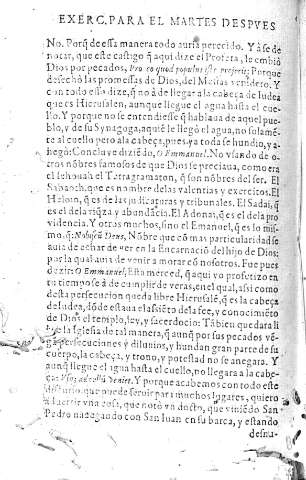 EXERC. PARA EL MARTES DESPVES
No. Porq̃ deessa manera todo auria perecido. Y a se de
notar, que este castigo q̃ aqui dize el Profeta, le embiò
Dios por pecados, Pro eo quod populus iste proiecit; Porque
desechò las promessas de Dios, del Mesias venidero. Y
con todo esso dize, q̃ no à de llegar a la cabeça de Iudea
que es Hierusalen, aunque llegue el agua hasta el cue-
llo. Y porque no se entendiesse q̃ hablaua de aquel pue-
blo, y de su Synagoga, aquiẽ le llegò el agua, no solamẽ-
te al cuello pero ala cabeça, pues ya toda se hundio, y a-
negò: Concluye diziẽdo, O Emmanuel. No vsando de o-
tros nõbres famosos de que Dios se preciaua, como era
el Iehouah el Tetragramaton, q̃ son nõbres del ser. El
Sabaoth, que es nombre delas valentias y exercitos. El
Heloin, q̃ es de las judicaturas y tribunales. El Sadai, q̃
es el dela riq̃za y abundãcia. El Adonai, q̃ es el dela pro
videncia. Y otros muchos, sino el Emanuel, q̃ es lo mis-
mo, q̃: Nobiscũ Deus, Nõbre que cõ mas particularidad se
auia de echar de ver en la Encarnaciõ del hijo de Dios:
por la qual auia de venir a morar cõ nosotros. Fue pues
dezir: O Emmanuel, Esta merced, q̃ aqui yo profetizo en
tu tiempo se à de cumplir de veras, en el qual, assi como
desta persecucion queda libre Hierusalẽ, q̃ es la cabeça
de Iudea, dõde estaua el assiẽto dela fee, y conocimiẽto
de Dios el templo, ley, y sacerdocio: Tãbiẽ quedara li
bre la Iglesia de tal manera, q̃ aunq̃ por sus pecados vẽ-
gã persecuciones y diluuios, y hundan gran parte de su
cuerpo, la cabeça, y trono, y potestad no se anegara. Y
aunq̃ llegue el agua hasta el cuello, no llegara a la cabe-
ça: Y porque acabemos con todo este
discurso, que puede seruir para muchos lugares, quiero
aduertir vna cosa, que notò vn docto, que viniẽdo San
Pedro nauegando con San Iuan en su barca, y estando
desnu-